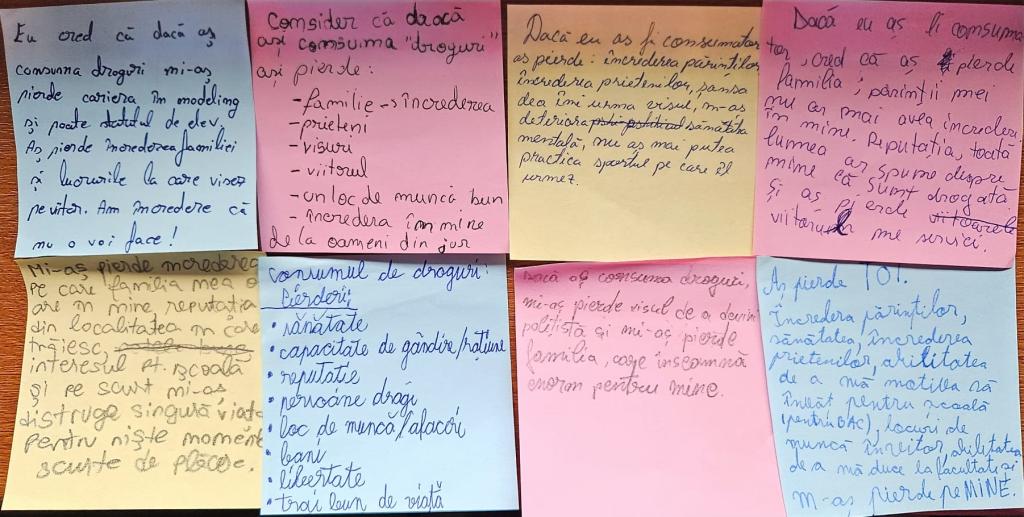 Eu cred că dacă aș
consuma droguri mi-aș
pierde cariera în modeling
și poate statutul de elev.
Aș pierde încrederea familiei
și lucrurile la care visez
pe viitor. Am încredere că
nu o voi face!
Consider că dacă
ași consuma "droguri"
ași pierde:
- familie → încrederea
- prieteni
- visuri
- viitorul
- un loc de muncă bun
- încredera în mine
de la oameni din jur
Dacă eu aș fi consumator
aș pierde: încrederea părinților,
încrederea prietenilor, șansa
dea îmi urma visul, mi-aș
deteriora sănătata
mentală, nu aș mai putea
practica sportul pe care îl
urmez.
Dacă eu aș fi consuma
tor, cred că aș pierde
familia; părinții mei
nu ar mai avea încredere
în mine. Reputația, toată
lumea ar spune despre
mine că sunt drogată
și aș pierde viitoarele
viitorul me servici.
Mi-aș pierde încrederea
pe care familia mea o
are în mine, reputația
din localitatea în care
trăiesc,
interesul pt. școală
și pe scurt mi-aș
distruge singură viața
pentru niște momente
scurte de plăcere.
Consumul de droguri:
Pierderi:
• sănătate
• capacitate de gândire/rațiune
• reputație
• persoane dragi
• loc de muncă/afaceri
• bani
• libertate
• trai bun de viață
Dacă aș consuma droguri,
mi-aș pierde visul de a deveni
polițistă și mi-aș pierde
familia, care înseamnă
enorm pentru mine.
Aș pierde TOT.
Încrederea părinților,
sănătatea, încrederea
prietenilor, abilitatea
de a mă motiva să
învăț pentru școală
(pentru BAC), locuri de
muncă în viitor, abilitatea
de a mă duce la facultati și
m-aș pierde pe MINE.